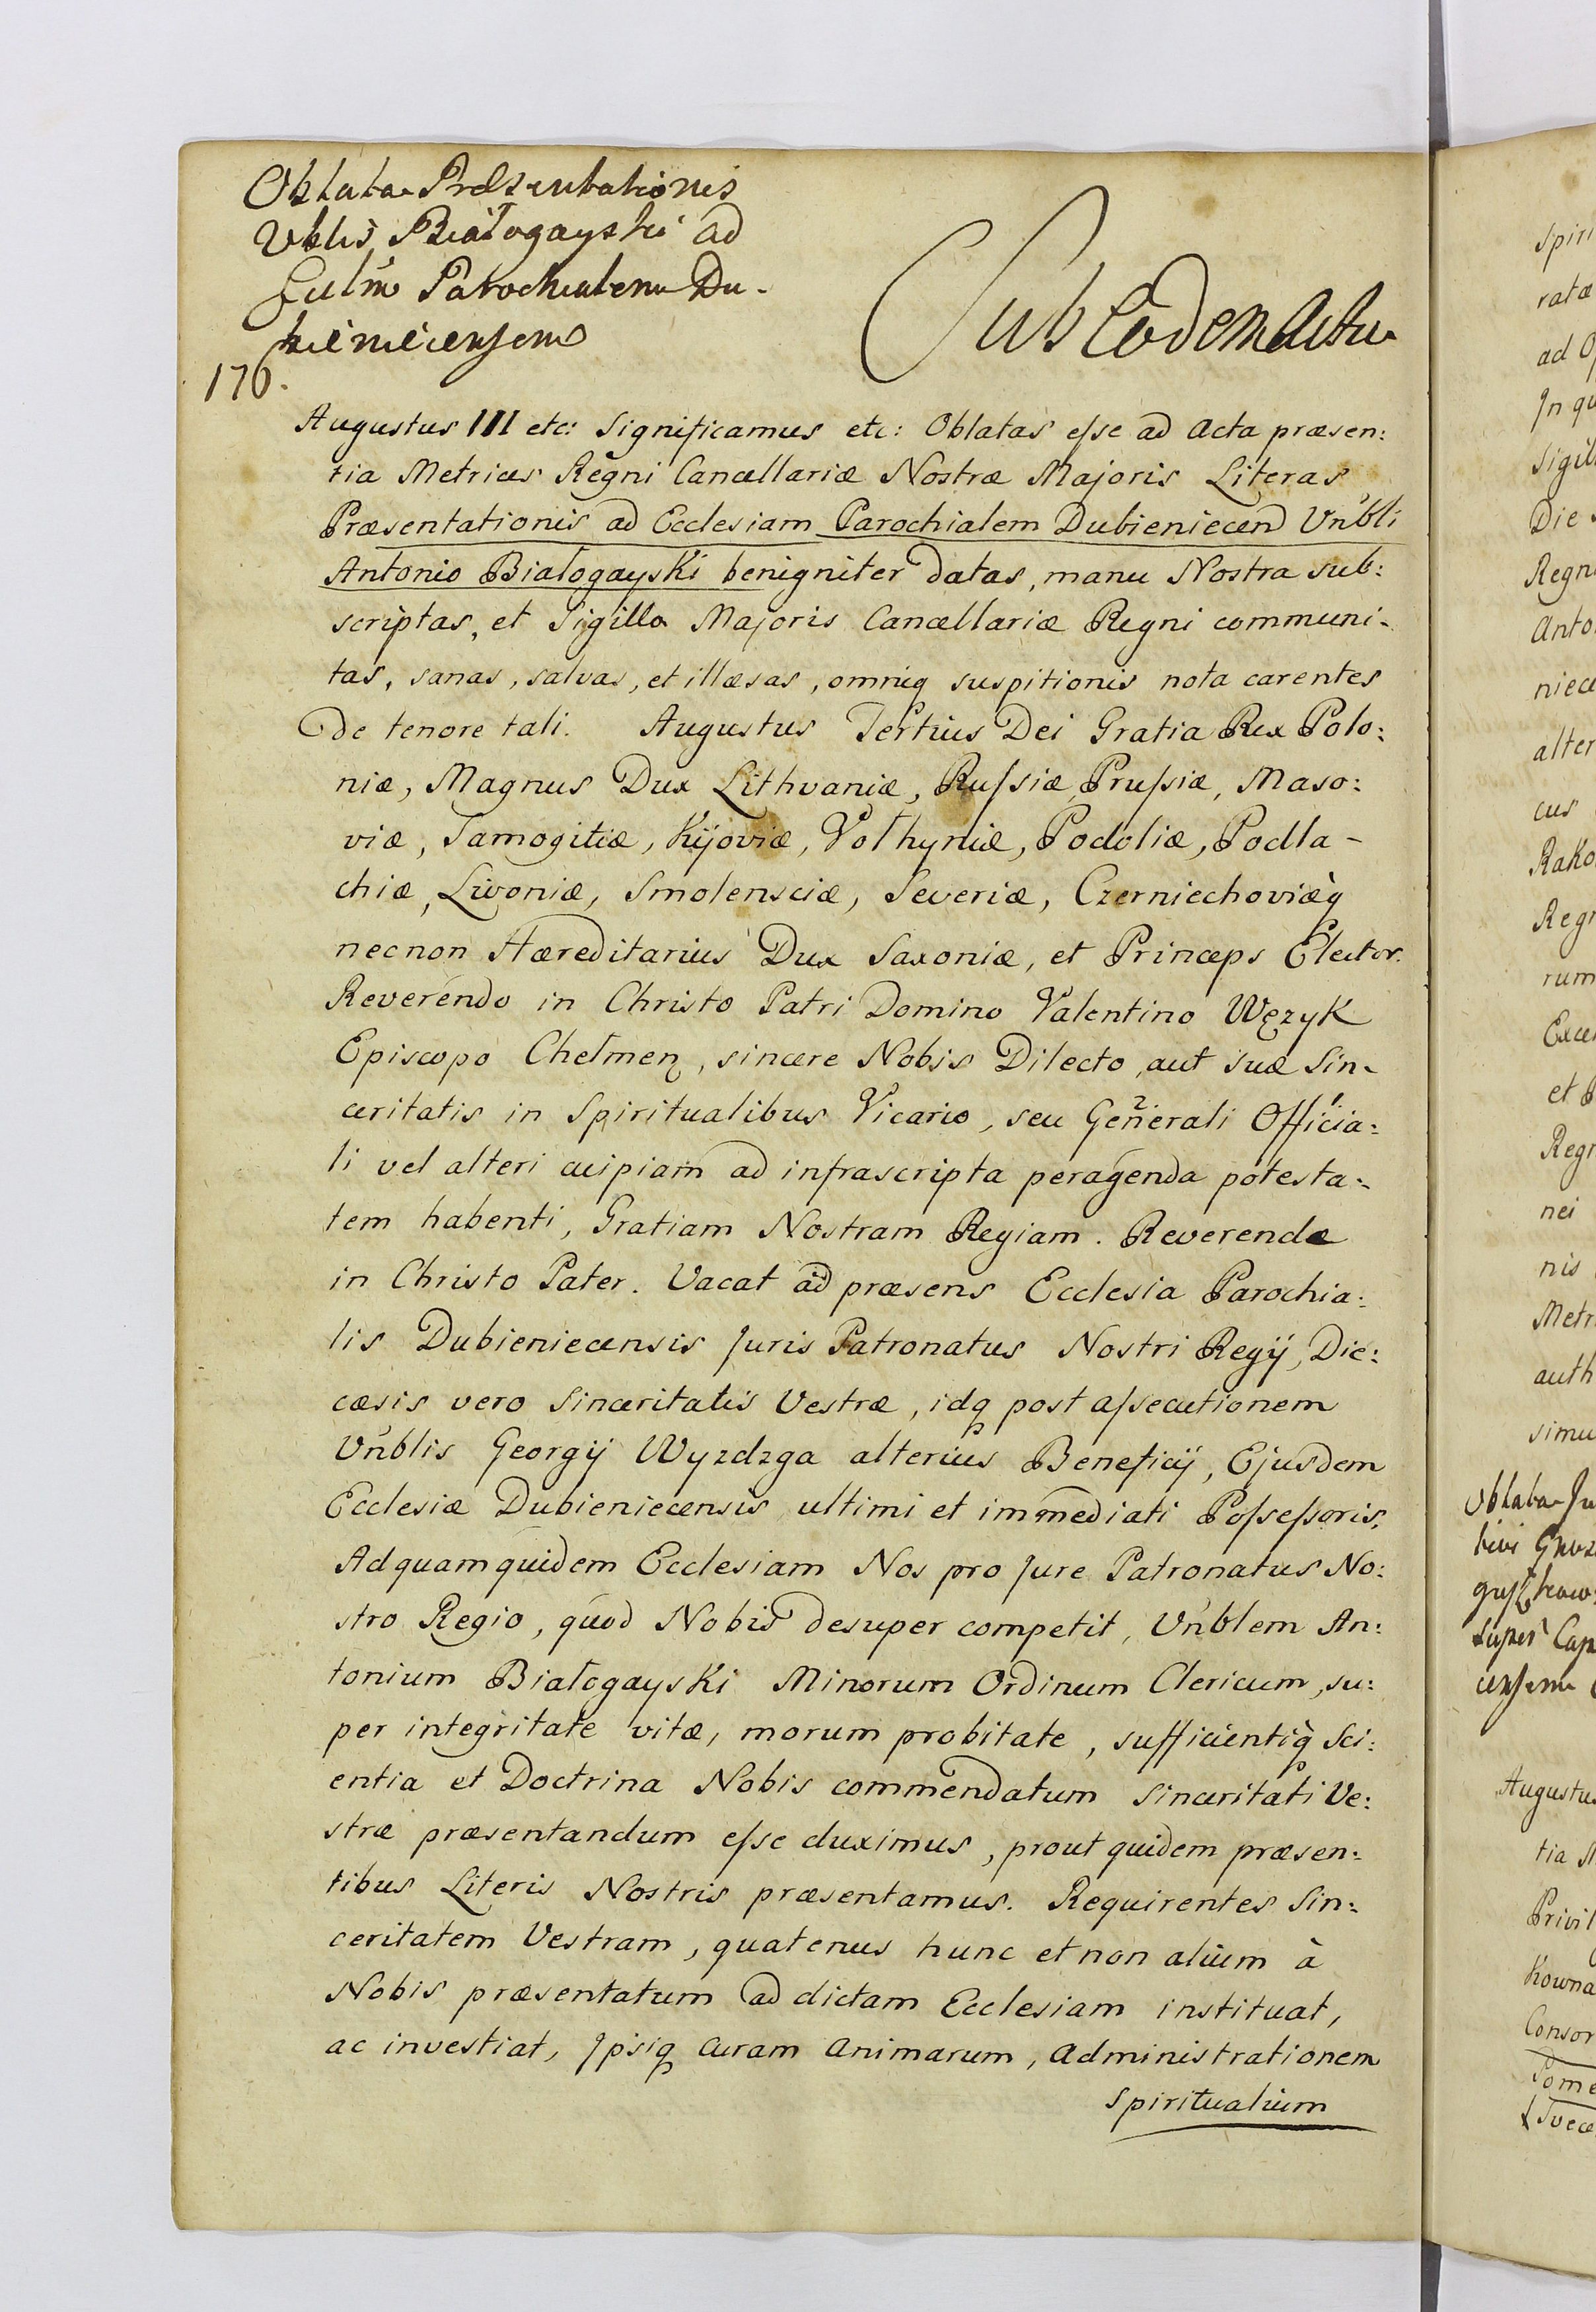 Oblata Præsentationis
Vblis Białogayski ad
Eccłm Parochialem Du-
bieniecensem
176.
Sub Eodem Actu
Augustus III etc: Significamus etc: Oblatas eſse ad Acta præsen:
tia Metrices Regni Cancellariæ Nostræ Majoris Literas
Præsentationis ad Ecclesiam Parochialem Dubieniecen Vn̄bli
Antonio Białogayski benigniter datas, manu Nostra sub:
scriptas, et Sigillo Majoris Cancellariæ Regni communi-
tas, sanas, salvas, et illæsas, omniq suspitionis nota carentes
De tenore tali. Augustus Tertius Dei Gratia Rex Polo:
niæ, Magnus Dux Lithvaniæ, Ruſsiæ, Pruſsiæ, Maso:
viæ, Samogitiæ, Kijoviæ, Volhyniæ, Podoliæ, Podla-
chiæ, Livoniæ, Smolensciæ, Severiæ, Czerniechoviæq̀
necnon Hæreditarius Dux Saxoniæ, et Princeps Elector.
Reverendo in Christo Patri Domino Valentino Węzyk
Episcopo Chełmen, sincere Nobis Dilecto, aut suæ Sin-
ceritatis in Spiritualibus Vicario, seu Generali Officia:
li vel alteri cuipiam ad infrascripta peragenda potesta:
tem habenti, Gratiam Nostram Regiam. Reverende
in Christo Pater. Vacat ad præsens Ecclesia Parochia:
lis Dubieniecensis Juris Patronatus Nostri Regij, Die:
cæsis vero Sinceritatis Vestræ, idq post aſsecutionem
Vn̄blis Georgij Wyzdzga alterius Beneficij, Ejusdem
Ecclesiæ Dubieniecensis ultimi et immediati Poſseſsoris,
Ad quam quidem Ecclesiam Nos pro Jure Patronatus No:
stro Regio, quod Nobis desuper competit, Vn̄blem An:
tonium Białogayski Minorum Ordinum Clericum, su:
per integritate vitæ, morum probitate, sufficientiq̀ Sci:
entia et Doctrina Nobis commendatum Sinceritati Ve:
stræ præsentandum eſse duximus, prout quidem præsen:
tibus Literis Nostris præsentamus. Requirentes Sin:
ceritatem Vestram, quatenus hunc et non alium à
Nobis præsentatum ad dictam Ecclesiam instituat,
ac investiat, Jpsiq curam Animarum, Administrationem
spiritualium
Spiri
ratæ
ad O
Jn qu
Sigil
Die
Regn
Anto
niece
alter
cus
Rako
Regn
rum
Exce
et
Regn
nei
nis
Metr
auth
simu
Oblata Ju
super Cap
censem
Augustus
tia
Privil
Kowna
Consor
Pome